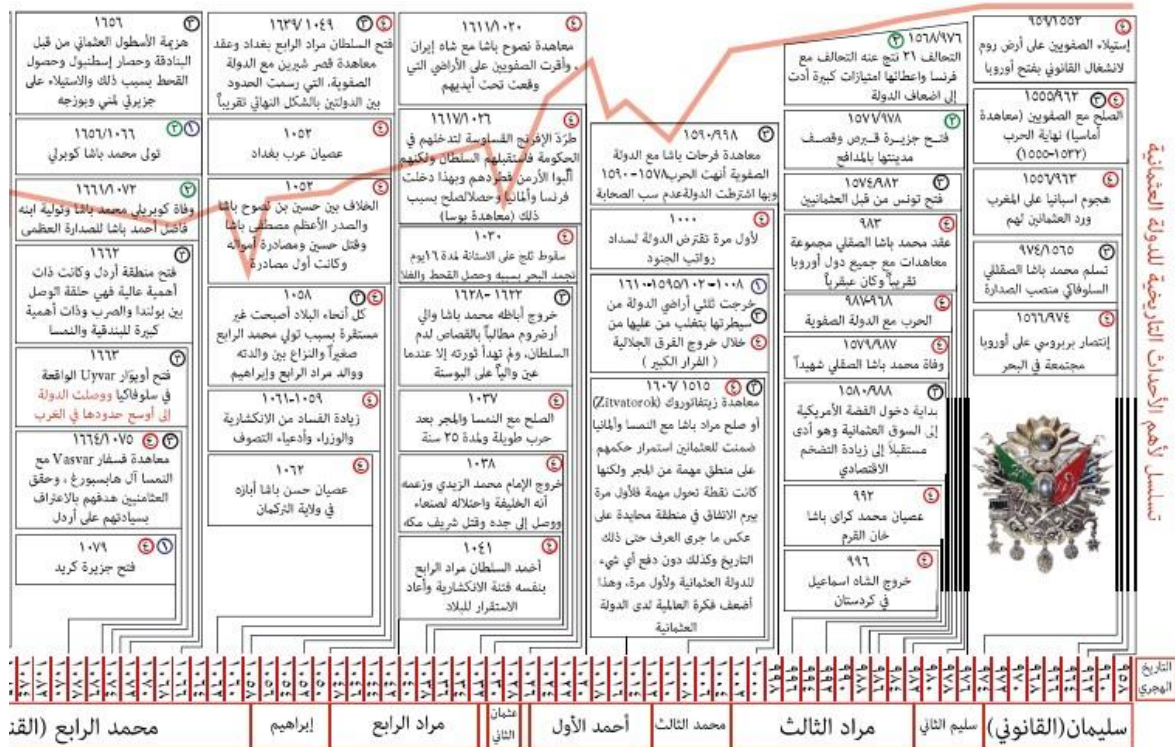 تسلسل لأهم الأحداث التاريخية للدولة العثمانية
٩٥٩/١٥٥٢ ④
إستيلاء الصفويين على أرض روم
لانشغال القانوني بفتح أوروبا
١٥٥٥/٩٦٢ ③ ④
الصلح مع الصفويين (معاهدة
أماسيا) نهاية الحرب
(١٥٣٢-١٥٥٥)
١٥٥٦/٩٦٣ ④
هجوم اسبانيا على المغرب
ورد العثمانين لهم
٩٧٤/١٥٦٥ ③
تسلم محمد باشا الصقللي
السلوفاكي منصب الصدارة
١٥٦٦/٩٧٤ ④
إنتصار بربروسي على أوروبا
مجتمعة في البحر
١٥٦٨/٩٧٦ ③
التحالف ٢١ نتج عنه التحالف مع
فرنسا واعطائها امتيازات كبيرة أدت
إلى اضعاف الدولة
١٥٧٧/٩٧٨ ③
فتح جزيرة قبرص وقصف
مدينتها بالمدافع
١٥٧٤/٩٨٢ ③
فتح تونس من قبل العثمانيين
٩٨٣ ④
عقد محمد باشا الصقلي مجموعة
معاهدات مع جميع دول أوروبا
تقريباً وكان عبقرياً
٩٦٨-٩٨٧ ④
الحرب مع الدولة الصفوية
١٥٧٩/٩٨٧ ④
وفاة محمد باشا الصقلي شهيداً
١٥٨٠/٩٨٨ ③
بداية دخول الفضة الأمريكية
إلى السوق العثمانية وهو أدى
مستقبلاً إلى زيادة التضخم
الاقتصادي
٩٩٢ ④
عصيان محمد كراي باشا
خان القرم
٩٩٦ ④
خروج الشاه اسماعيل
في كردستان
١٥٩٠/٩٩٨ ③
معاهدة فرحات باشا مع الدولة
الصفوية أنهت الحرب١٥٧٨-١٥٩٠
وبها اشترطت الدولةعدم سب الصحابة
١٠٠٠ ④
لأول مرة تقترض الدولة لسداد
رواتب الجنود
١٠٠٨-١٠٢/١٥٩٥-١٦١٠ ①
خرجت ثلثي أراضي الدولة من
③ سيطرتها بتغلب من عليها من
④ خلال خروج الفرق الجلالية
( الفرار الكبير )
١٥١٥/١٦٠٦ ④ ③
معاهدة زيتفاتوروك (Zitvatorok)
أو صلح مراد باشا مع النمسا وألمانيا
ضمنت للعثمانين استمرار حكمهم
على منطق مهمة من المجر ولكنها
كانت نقطة تحول مهمة فلأول مرة
يبرم الاتفاق في منطقة محايدة على
عكس ما جرى العرف حتى ذلك
التاريخ وكذلك دون دفع أي شيء
للدولة العثمانية ولأول مرة، وهذا
أضعف فكرة العالمية لدى الدولة
العثمانية
١٦١١/١٠٢٠ ④
معاهدة نصوح باشا مع شاه إيران
، وأقرت الصفويين على الأراضي التي
وقعت تحت أيديهم
١٦١٧/١٠٢٦ ④
طرّدَ الإفرنج القساوسة لتدخلهم في
الحكومة فاستقبلهم السلطان ولكنهم
ألّبوا الأرمن فطردهم وبهذا دخلت
فرنسا وألمانيا وحصلالصلح بسبب
ذلك (معاهدة بوسا)
١٠٣٠ ④
سقوط ثلج على الاستانة لمدة ١٦يوم
تجمد البحر بسببه وحصل القحط والغلا
١٦٢٢-١٦٢٨ ③
خروج أباظه محمد باشا والي
أرضروم مطالباً بالقصاص لدم
السلطان، ولم تهدأ ثورته إلا عندما
عين والياً على البوسنة
١٠٣٧ ④
الصلح مع النمسا والمجر بعد
حرب طويلة ولمدة ٢٥ سنة
١٠٣٨ ④
خروج الإمام محمد الزيدي وزعمه
أنه الخليفة واحتلاله لصنعاء
ووصل إلى جده وقتل شريف مكه
١٠٤١ ④
أخمد السلطان مراد الرابع
بنفسه فتنة الانكشارية وأعاد
الاستقرار للبلاد
١٦٣٩/١٠٤٩ ③ ④
فتح السلطان مراد الرابع بغداد وعقد
معاهدة قصر شيرين مع الدولة
الصفوية، التي رسمت الحدود
بين الدولتين بالشكل النهائي تقريباً
١٠٥٢ ④
عصيان عرب بغداد
١٠٥٢ ④
الخلاف بين حسين بن نصوح باشا
والصدر الأعظم مصطفى باشا
وقتل حسين ومصادرة أمواله
وكانت أول مصادرة
١٠٥٨ ③ ④
كل أنحاء البلاد أصبحت غير
مستقرة بسبب تولي محمد الرابع
صغيراً والنزاع بين والدته
ووالد مراد الرابع وإبراهيم
١٠٥٩-١٠٦١ ④
زيادة الفساد من الانكشارية
والوزراء وأدعياء التصوف
١٠٦٢ ④
عصيان حسن باشا أبازه
في ولاية التركمان
١٦٥٦ ③
هزيمة الأسطول العثماني من قبل
البنادقة وحصار إسطنبول وحصول
القحط بسبب ذلك والاستيلاء على
جزيرتي لمني وبوزجه
١٦٥٦/١٠٦٦ ③ ①
تولى محمد باشا كوبرلي
١٦٦١/١٠٧٢ ③
وفاة كوبريلي محمد باشا وتولية ابنه
فاضل أحمد باشا للصدارة العظمى
١٦٦٢ ③
فتح منطقة أردل وكانت ذات
أهمية عالية فهي حلقة الوصل
بين بولندا والصرب وذات أهمية
كبيرة للبندقية والنمسا
١٦٦٣ ③
فتح أويوَار Uyvar الواقعة
في سلوفاكيا ووصلت الدولة
إلى أوسع حدودها في الغرب
١٦٦٤/١٠٧٥ ④ ③
معاهدة فسفار Vasvar مع
النمسا آل هابسبورغ ، وحقق
العثامنيين هدفهم بالاعتراف
بسيادتهم على أردل
١٠٧٩ ④ ①
فتح جزيرة كريد
التاريخ
الهجري
سليمان(القانوني)
سليم الثاني
مراد الثالث
محمد الثالث
أحمد الأول
عثمان
الثاني
مراد الرابع
إبراهيم
محمد الرابع (القن